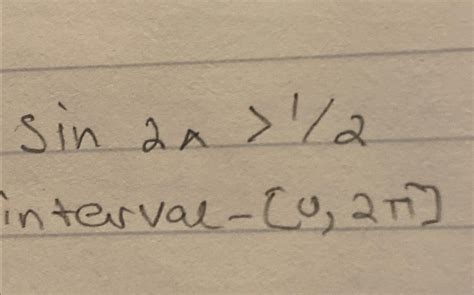 Sin 2x > 1/2
interval - [0, 2π]